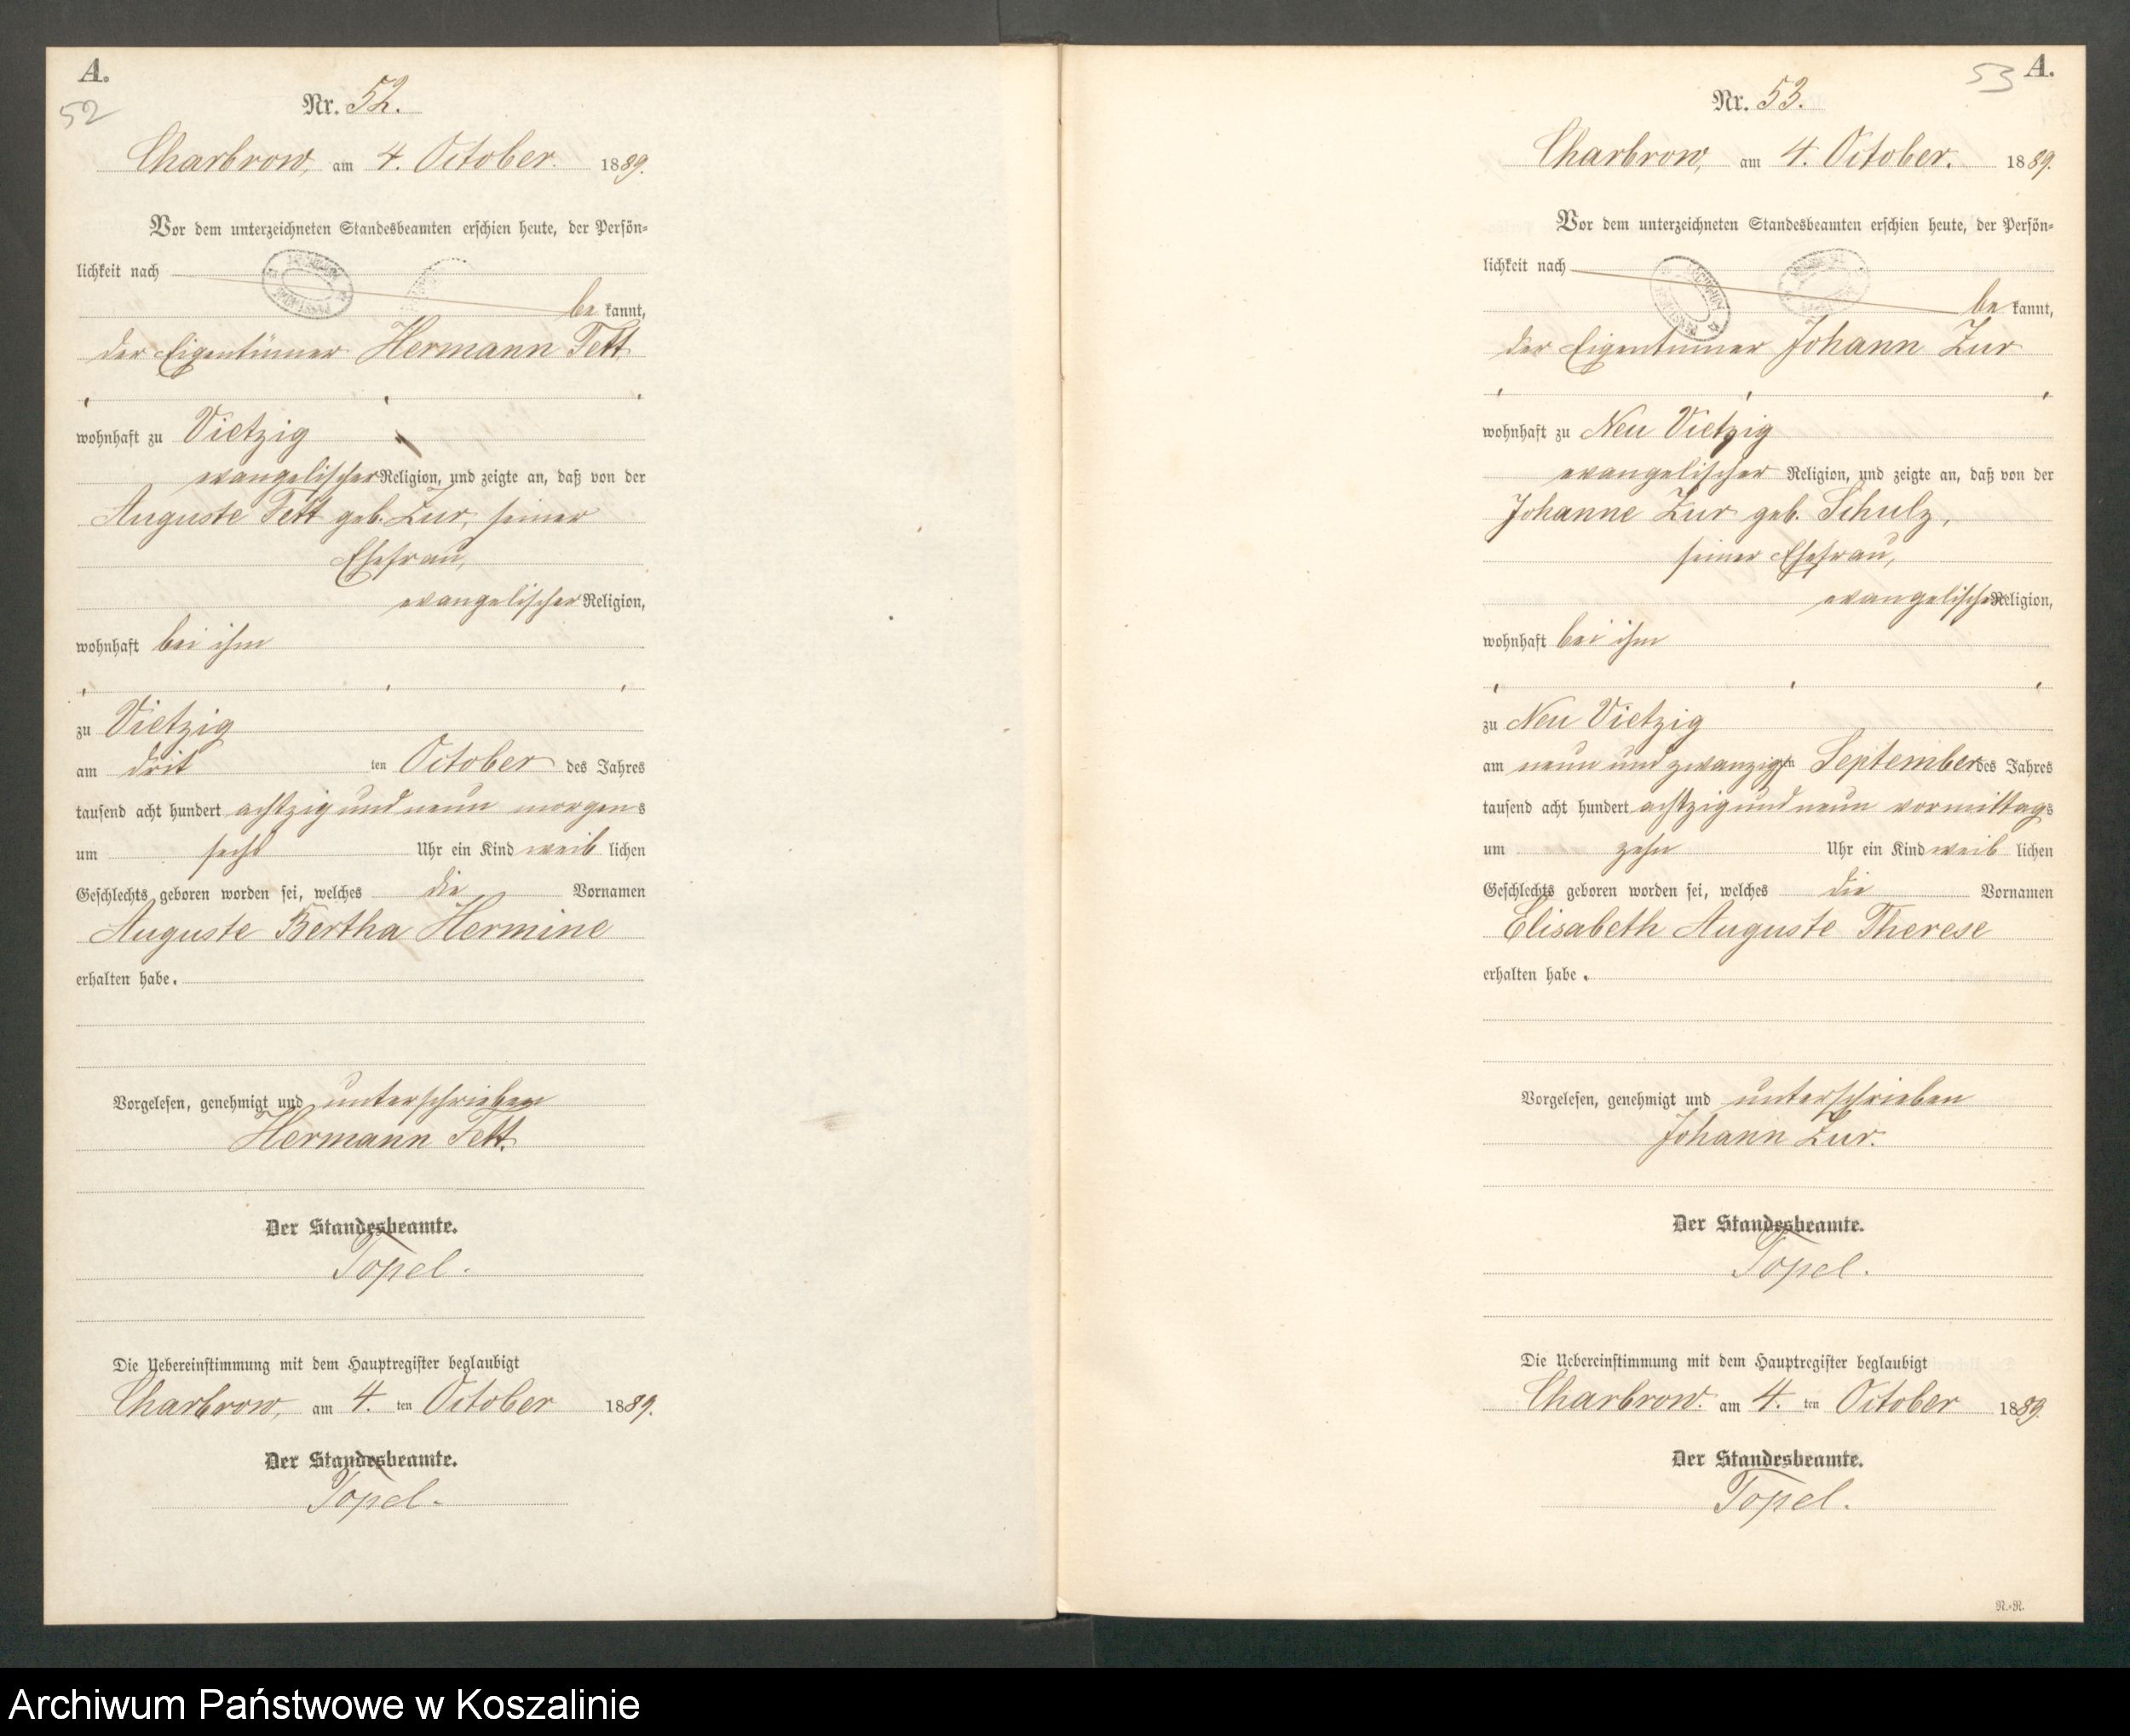 A.
52
Nr. 52.
Charbrow, am 4. October. 1889.
Vor dem unterzeichneten Standesbeamten erschien heute, der Persön-
lichkeit nach
be kannt,
der Eigentümer Hermann Tett
wohnhaft zu Vietzig
evangelischer Religion, und zeigte an, daß von der
Auguste Tett geb. Zur, seiner
Ehefrau,
evangelischer Religion,
wohnhaft bei ihm
zu Vietzig
am drit ten October des Jahres
tausend acht hundert achtzig und neun morgens
um sechs Uhr ein Kind weib lichen
Geschlechts geboren worden sei, welches die Vornamen
Auguste Bertha Hermine
erhalten habe.
Vorgelesen, genehmigt und unterschrieben
Hermann Tett.
Der Standesbeamte.
Topel.
Die Uebereinstimmung mit dem Hauptregister beglaubigt
Charbrow, am 4. ten October 1889.
Der Standesbeamte.
Topel.
53 A.
Nr. 53.
Charbrow, am 4. October. 1889.
Vor dem unterzeichneten Standesbeamten erschien heute, der Persön-
lichkeit nach
be kannt,
der Eigentümer Johann Zur
wohnhaft zu Neu Vietzig
evangelischer Religion, und zeigte an, daß von der
Johanne Zur geb. Schulz,
seiner Ehefrau,
evangelischer Religion,
wohnhaft bei ihm
zu Neu Vietzig
am neun und zwanzigsten September des Jahres
tausend acht hundert achtzig und neun vormittags
um zehn Uhr ein Kind weib lichen
Geschlechts geboren worden sei, welches die Vornamen
Elisabeth Auguste Therese
erhalten habe.
Vorgelesen, genehmigt und unterschrieben
Johann Zur.
Der Standesbeamte.
Topel.
Die Uebereinstimmung mit dem Hauptregister beglaubigt
Charbrow. am 4. ten October 1889.
Der Standesbeamte.
Topel.
R.-R.
Archiwum Państwowe w Koszalinie